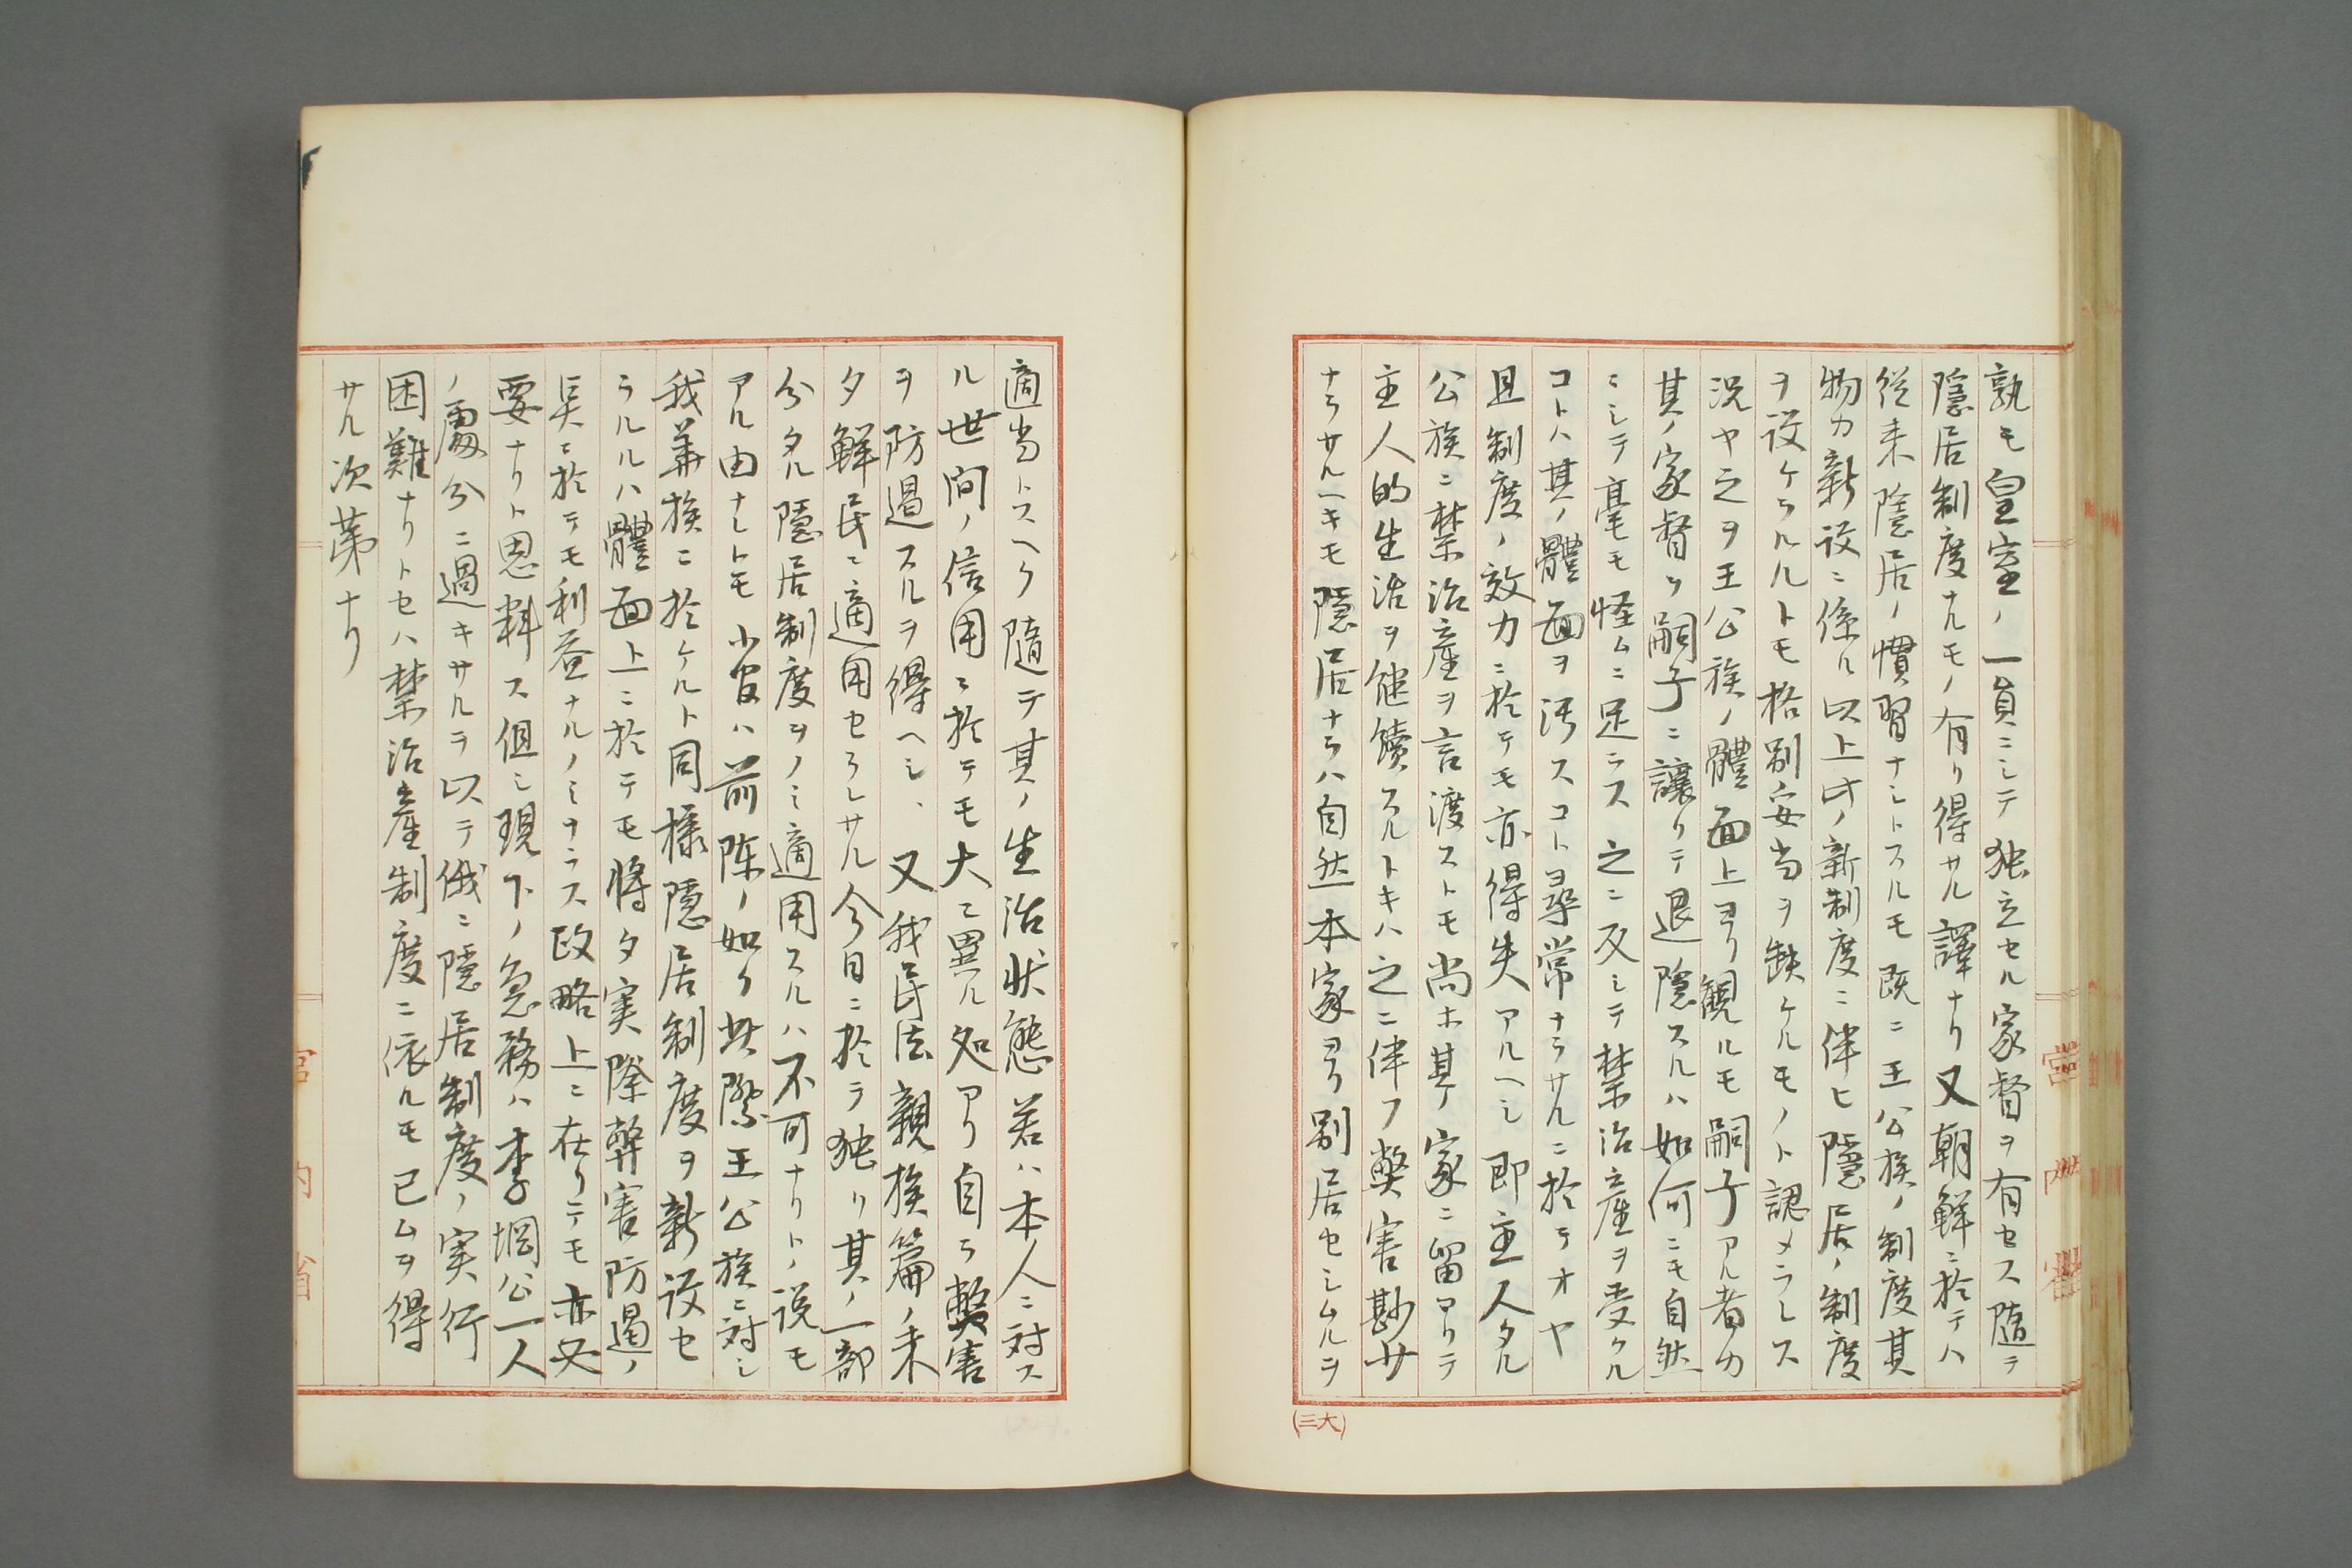 孰モ皇室ノ一員ニシテ独立セル家督ヲ有セス随テ
隠居制度ナルモノ有リ得サル譯ナリ又朝鮮ニ於テハ
従来隠居ノ慣習ナシトスルモ既ニ王公族ノ制度其
物カ新設ニ係ル以上此ノ新制度ニ伴ヒ隠居ノ制度
ヲ設ケラルルトモ格別妥当ヲ缺ケルモノト認メラレス
況ヤ之ヲ王公族ノ體面上ヨリ観ルモ嗣子アル者カ
其ノ家督ヲ嗣子ニ譲リテ退隠スルハ如何ニモ自然
ニシテ毫モ怪ムニ足ラス之ニ反シテ禁治産ヲ受クル
コトハ其ノ體面ヲ汚スコト尋常ナラサルニ於テオヤ
且制度ノ效力ニ於テモ亦得失アルヘシ即主人タル
公族ニ禁治産ヲ言渡ストモ尚ホ其ノ家ニ留マリテ
主人的生活ヲ継續スルトキハ之ニ伴フ弊害尠サ
ナラサルヘキモ隠居ナラハ自然本家ヨリ別居セシムルヲ
(三大)
宮内省
適当トスヘク随テ其ノ生活状態若ハ本人ニ対ス
ル世間ノ信用ニ於テモ大ニ異ル処アリ自ラ弊害
ヲ防遏スルヲ得ヘシ、又我民法親族篇ノ未
タ鮮民ニ適用セラレサル今日ニ於テ独リ其ノ一部
分タル隠居制度ヲノミ適用スルハ不可ナリトノ説モ
アル由ナレトモ小官ハ前陳ノ如ク此際王公族ニ対シ
我華族ニ於ケルト同様隠居制度ヲ新設セ
ラルルハ體面上ニ於テモ将タ実際弊害防遏ノ
点ニ於テモ利益ナルノミナラス政略上ニ在リテモ亦必
要ナリト思料ス但シ現下ノ急務ハ李堈公一人
ノ處分ニ過キサルヲ以テ俄ニ隠居制度ノ実行
困難ナリトセハ禁治産制度ニ依ルモ已ムヲ得
サル次第ナリ
宮内省